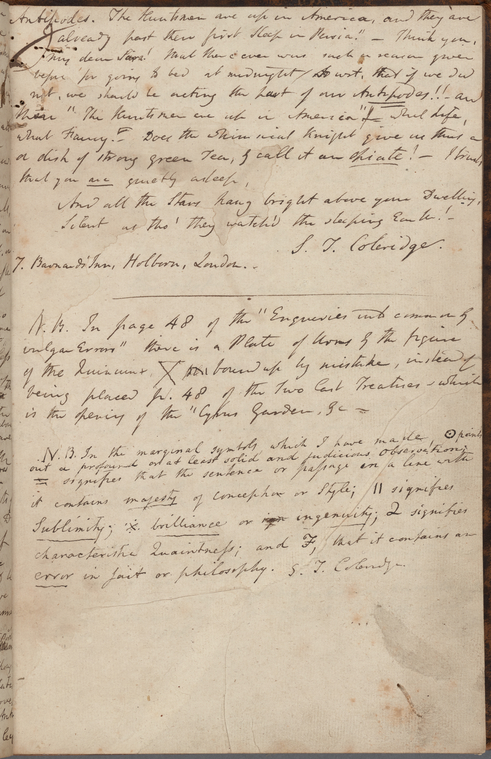 Antipodes. The Huntsmen are up in America, and they are
already past their first sleep in Persia!! — Think you,
my dear Sara! that there ever was such a reason given
before for going to bed at midnight, to wit, that if we did
not, we should be acting the part of our Antipodes!! — and
then "The Huntsmen are up in America" — what life,
what Fancy! Does the whimsical Knight give us thus a
dish of strong green Tea, & call it an Opiate! — I trust,
that you are quietly asleep,
And all the Stars hang bright above your Dwelling,
Silent as tho' they watch'd the sleeping Earth! —
S. T. Coleridge.
7. Barnard's Inn, Holborn, London..
N.B. In page 48 of the "Enquiries into common &
vulgar Errors" there is a Plate of Urns & the figure
of the Quincunx, bound up by mistake, instead of
being placed p. 48 of the Two last Treatises — which
is the opening of the "Cyrus Garden, &c =
N.B. In the marginal symbols, which I have made, ⊙ points
out a profound or at least solid and judicious observation;
= signifies that the sentence or passage in a line with
it contains majesty of conception or Style; || signifies
Sublimity; X brilliance or ingenuity; 2 signifies
characteristic Quaintness; and F, that it contains an
error in fact or philosophy. S. T. Coleridge.